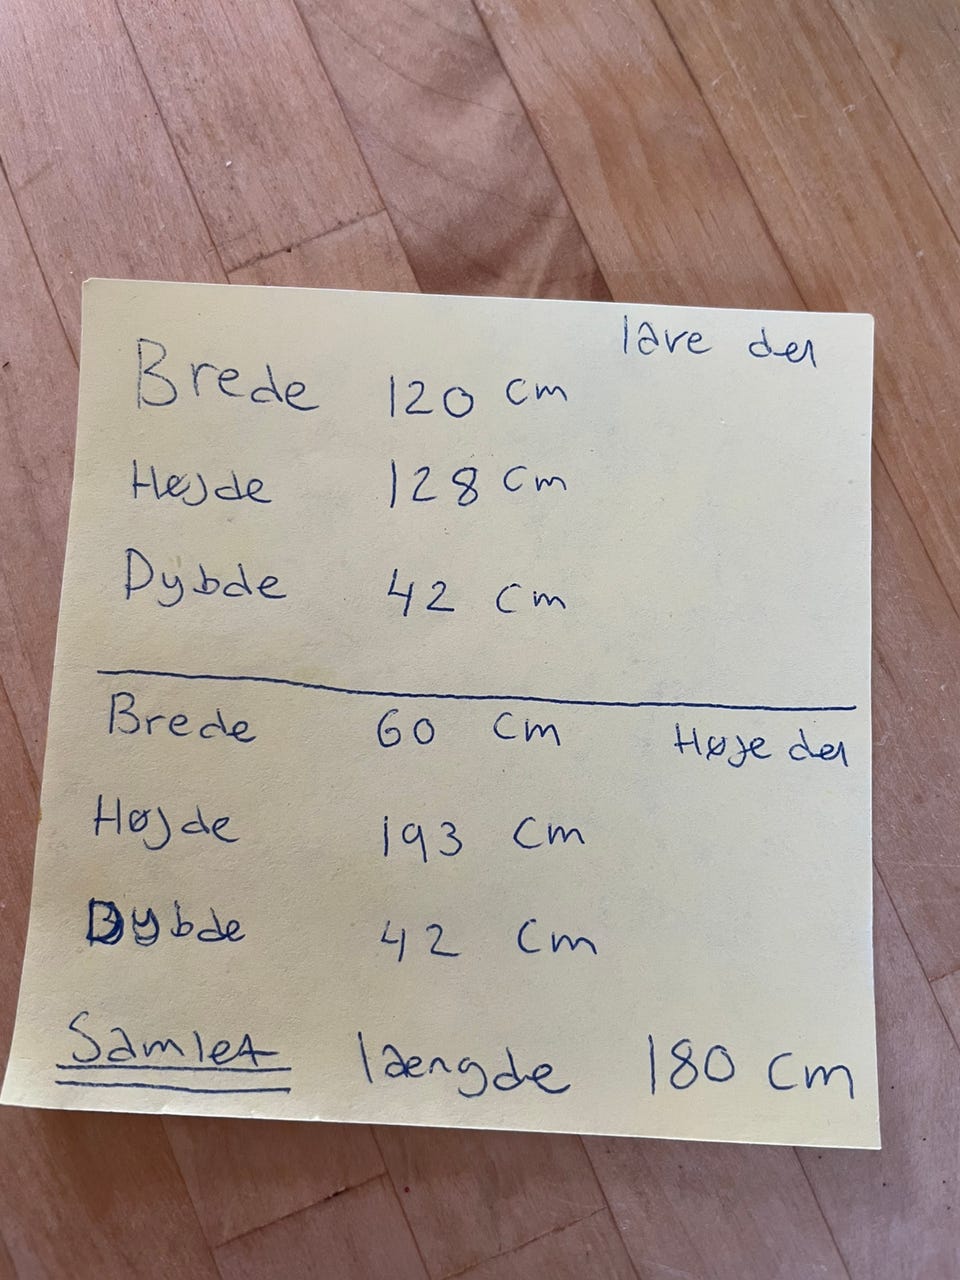 lave del
Brede 120 cm
Højde 128 cm
Dybde 42 cm
Brede 60 cm Høje del
Højde 193 cm
Dybde 42 cm
Samlet længde 180 cm